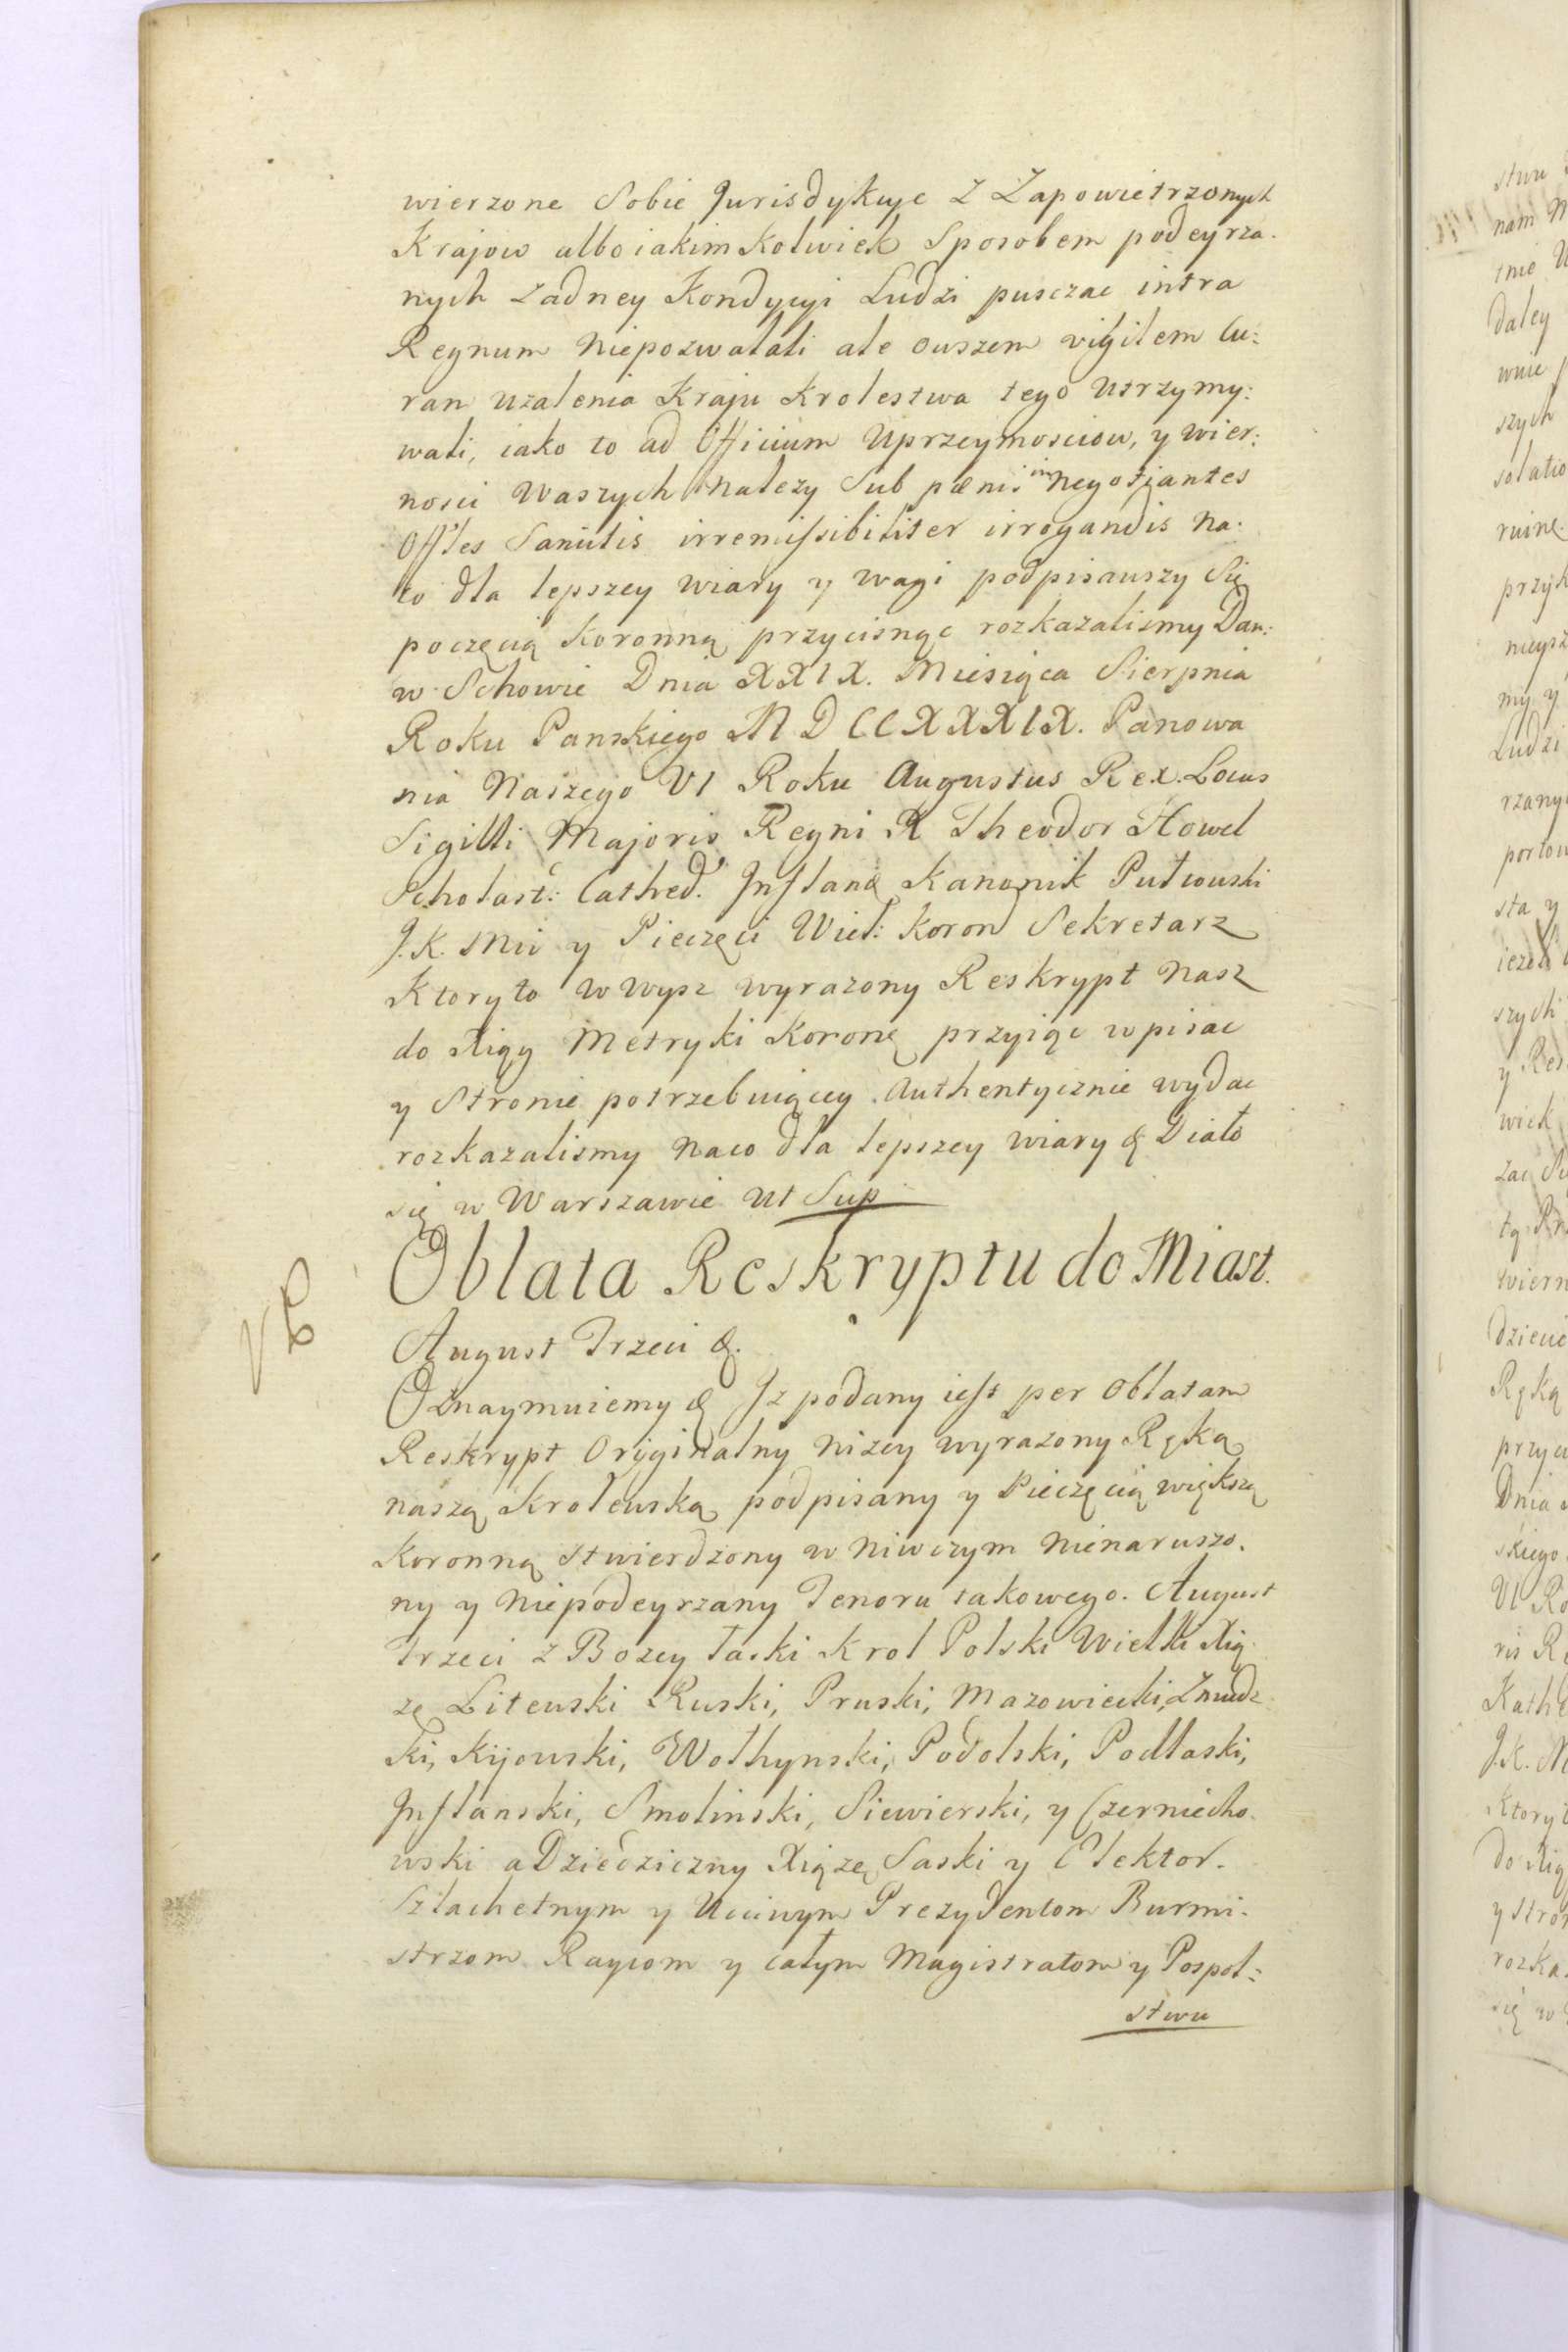 wierzone Sobie Jurisdykcye Z Zapowietrzonych
Krajow albo iakimkolwiek Sposobem podeyrza-
nych zadney Kondycyi Ludzi puszczac intra
Regnum niepozwalali ale owszem vigilem Cu:
ram uzalenia Kraju Krolestwa tego Utrzymy:
wali, iako to ad Officium Uprzeymosciow, y wier:
nosci Waszych nalezy Sub pœnis in negotiantes
Offles Sanitis irremissibiliter irrogandis Na:
co dla lepszey wiary y wagi podpisawszy Się
poczęcią Koronną przycisnąc rozkazalismy Dan:
w Schowie Dnia XXIX. Miesiąca Sierpnia
Roku Panskiego MDCCXXXIX. Panowa
nia Naszego VI Roku Augustus Rex. Locus
Sigilli Majoris Regni R Theodor Howel
Scholast: Cathed. Inflanc Kanonik Pułtowski
J.K. Mci y Pieczęci Wiel: Koron Sekretarz
Ktory to w wysz wyrazony Reskrypt Nasz
do Xiąg Metryki Koronę przyiąc wpisac
y Stronie potrzebuiącey Authentycznie wydac
rozkazalismy Naco dla lepszey wiary & Działo
się w Warszawie Ut Sup
Oblata Reskryptu do Miast.
August Trzeci &.
Oznaymuiemy & Jz podany iest per Oblatam
Reskrypt Oryginalny nizey wyrazony Ręką
naszą Krolewską podpisany y Pieczęcią większą
Koronną stwierdzony w niwczym nienaruszo-
ny y niepodeyrzany Tenoru takowego. August
trzeci z Bozey łaski Krol Polski Wielki Xią-
zę Litewski Ruski, Pruski, Mazowiecki, Zmudz-
ki, Kijowski, Wołhynski, Podolski, Podlaski,
Inflanski, Smolinski, Siewierski, y Czerniecho-
wski a Dziedziczny Xiązę Saski y Elektor.
Szlachetnym y Ucciwym Prezydentom Burmi-
strzom Raycom y całym Magistratom y Pospol:
stwu